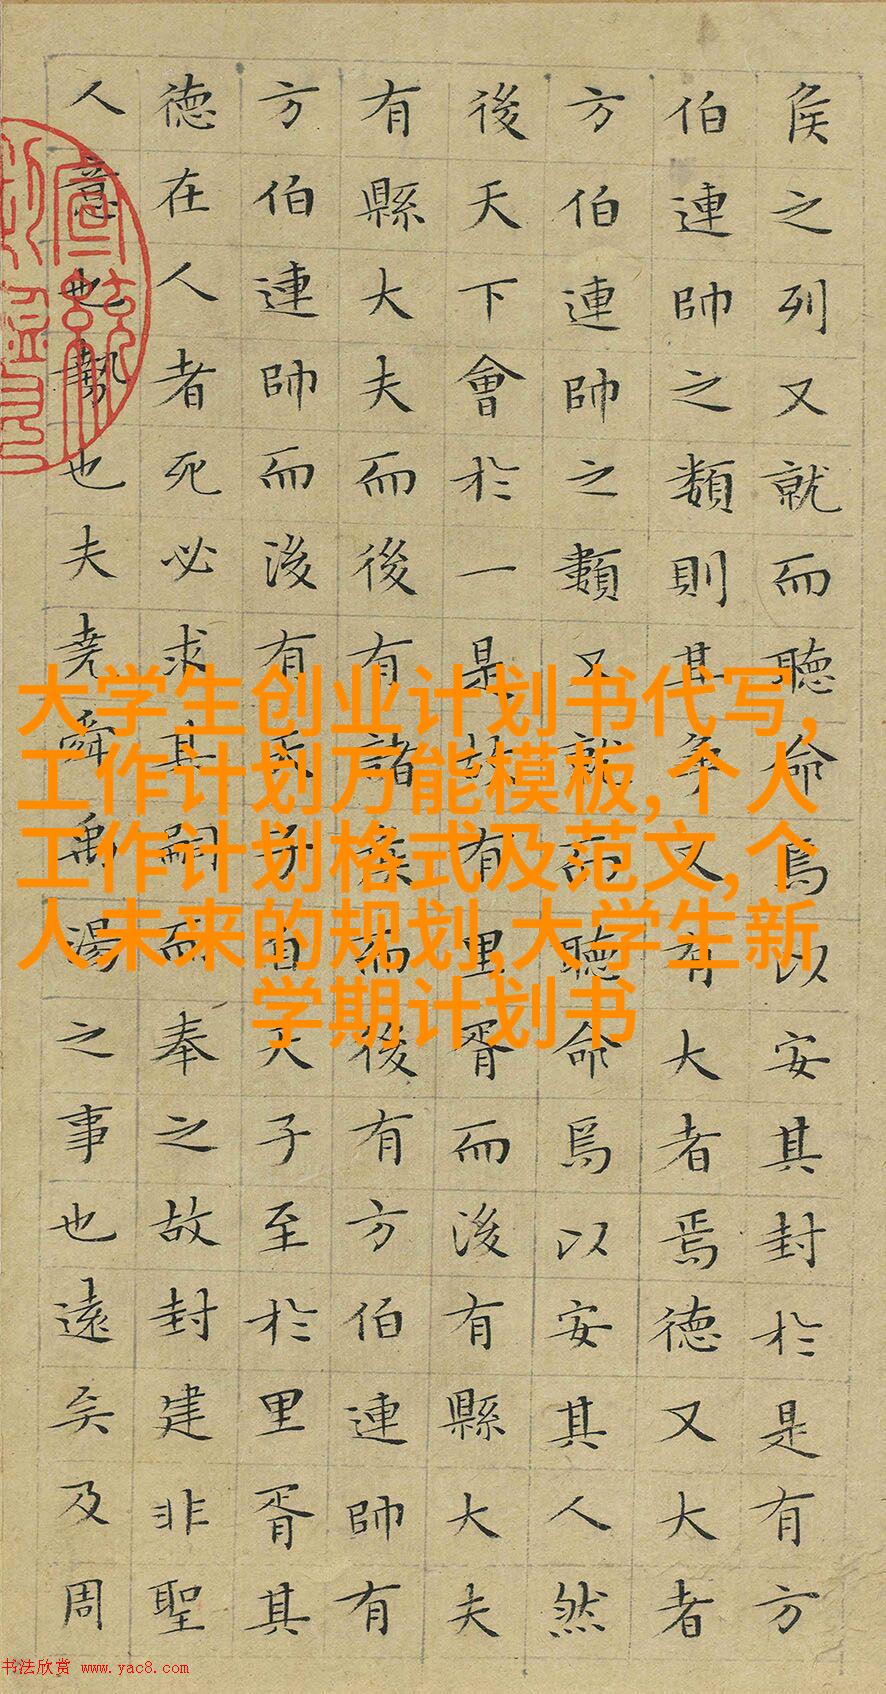 侯之列又就而聽命焉以安其封於是有方
伯連帥之類則其爭又有大者焉德又大者
方伯連帥之類又就而聽命焉以安其人然
後天下會於一是故有里胥而後有縣大夫
有縣大夫而後有諸侯而後有方伯連帥有
方伯連帥而後有天子自天子至於里胥其
德在人者死必求其嗣而奉之故封建非聖
人意也勢也夫堯舜禹湯之事也遠矣及周
大学生创业计划书代写,
工作计划万能模板,个人
工作计划格式及范文,个
人未来的规划,大学生新
学期计划书
书法欣赏 www.yac8.com